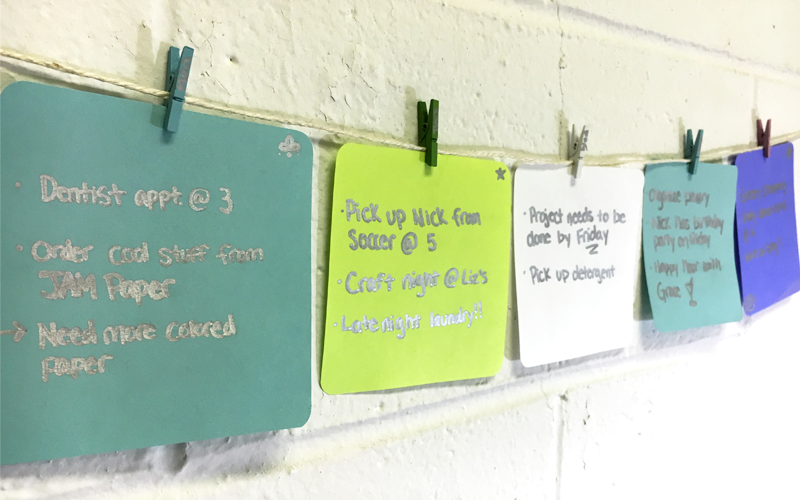 · Dentist appt. @ 3
· Order cool stuff from
JAM Paper
→ Need more colored
paper
· Pick up Nick from
Soccer @ 5
· Craft night @ Liz's
· Late night laundry!!
· Project needs to be
done by Friday
· Pick up detergent
Organize pantry
Nick has birthday
party on Friday
Happy Hour with
Grace